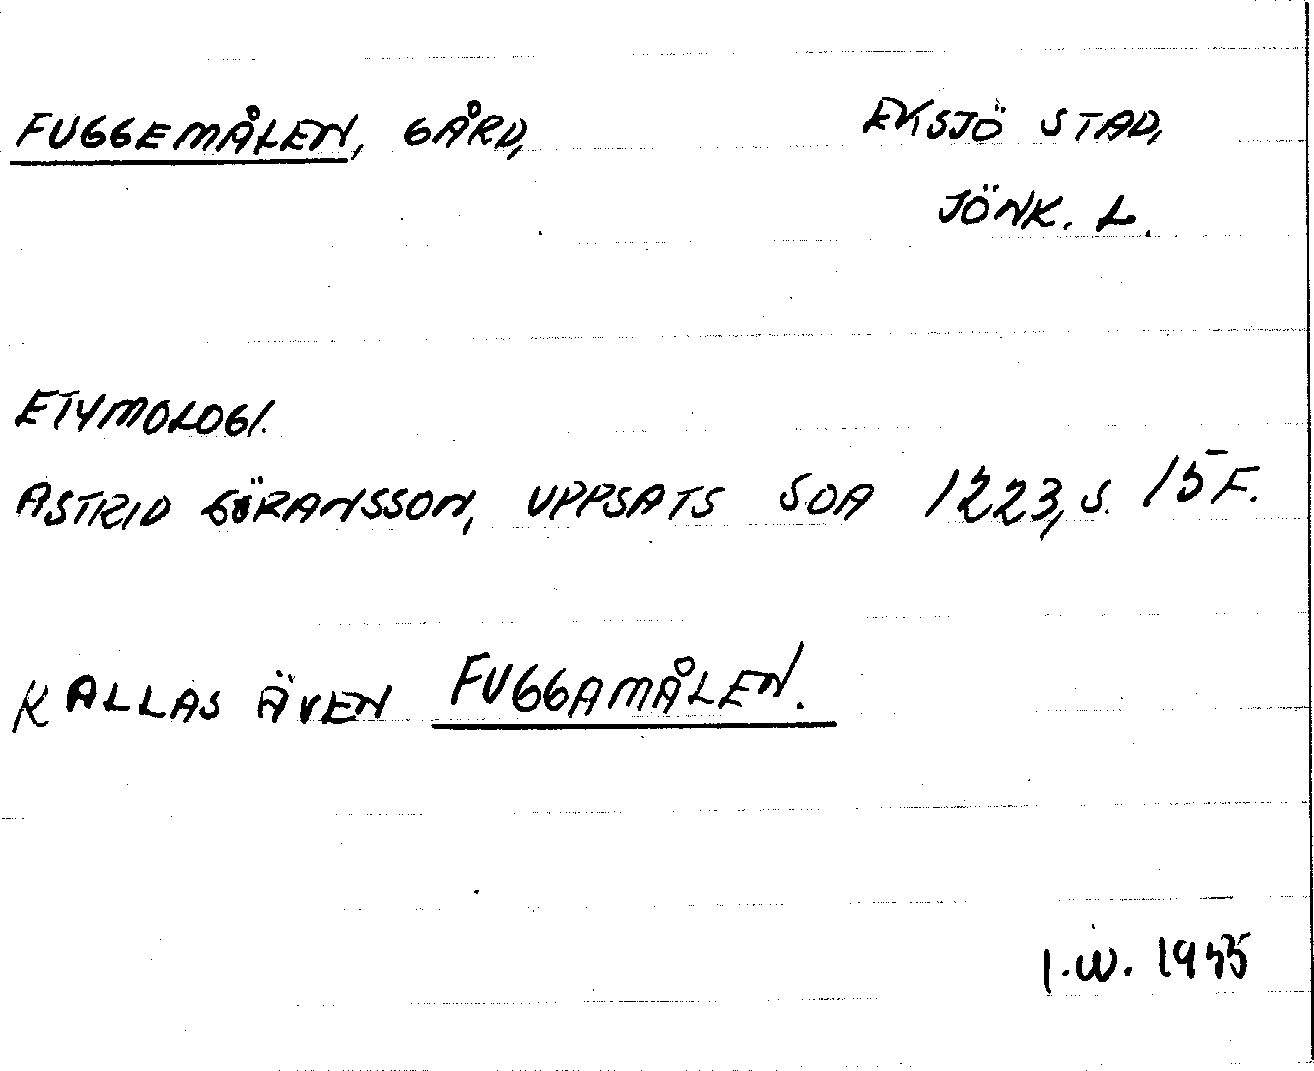 FUGGEMÅLEN, GÅRD, EKSJÖ STAD,
JÖNK. L.
ETYMOLOGI.
ASTRID GÖRANSSON, UPPSATS SOA 1223, S. 15 F.
KALLAS ÄVEN FUGGAMÅLEN.
I.W. 1955